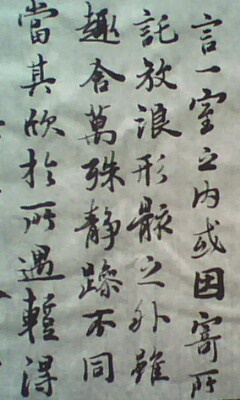 言一室之内或因寄所
託放浪形骸之外雖
趣舍萬殊静躁不同
當其欣於所遇蹔得